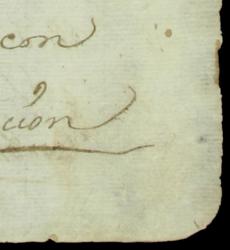 con
ción